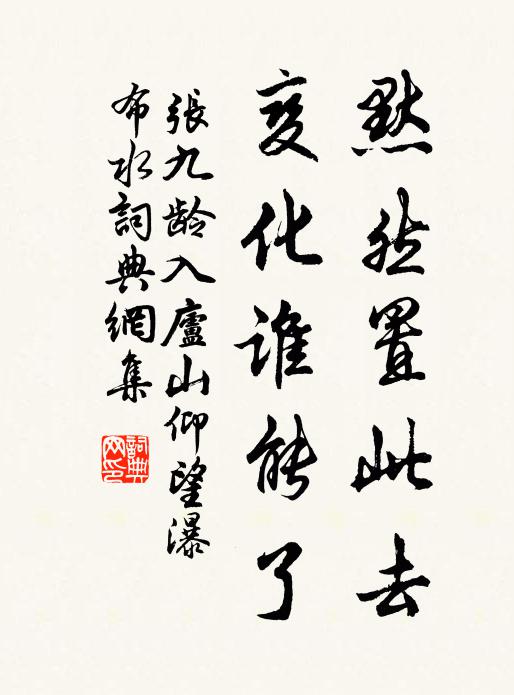 默然置此去
变化谁能了
張九龄入廬山仰望瀑
布水詞典網集
詞典
网印